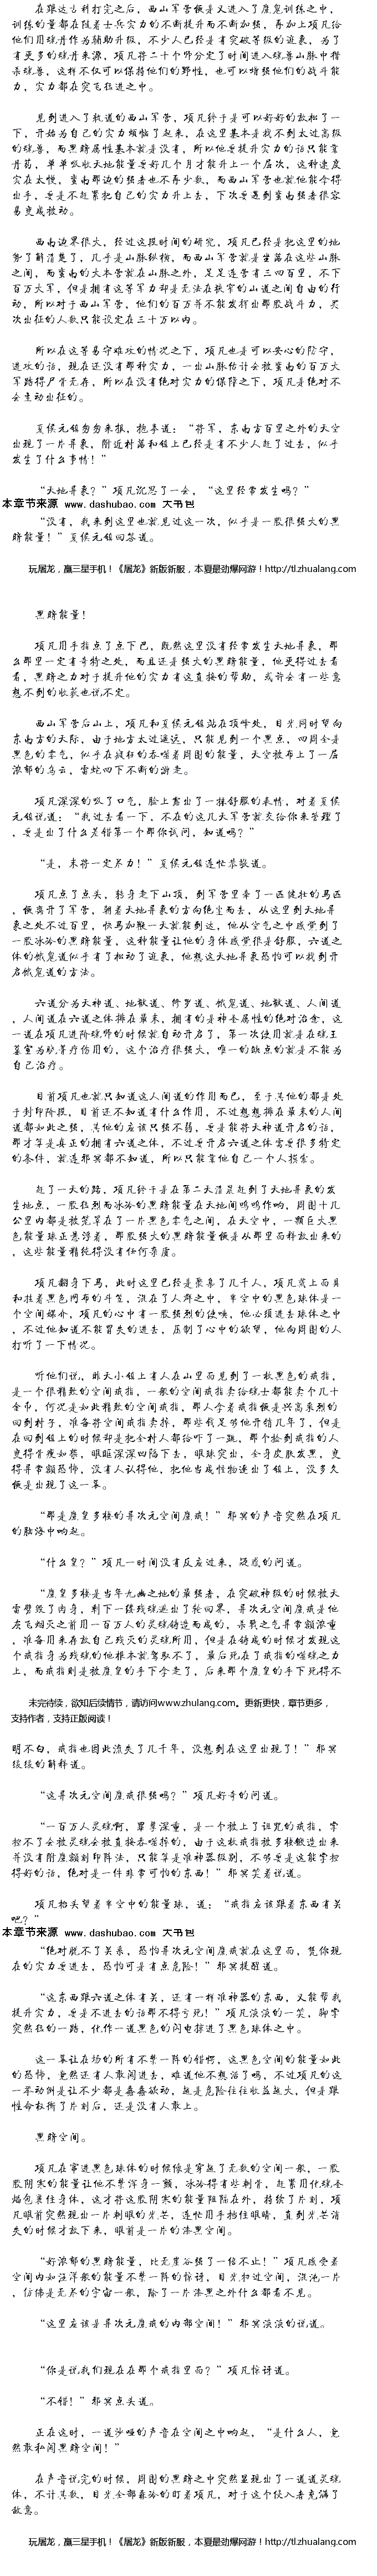 在跟达古利打完之后，西山军营便是又进入了魔鬼训练之中，
训练的量都在随着士兵实力的不断提升而不断加强，再加上项凡给
他们用魂丹作为辅助升级，不少人已经是有突破等级的迹象，为了
有更多的魂丹来源，项凡将二十个师分定了时间进入魂兽山脉中猎
杀魂兽，这样不仅可以保持他们的野性，也可以增强他们的战斗能
力，实力都在突飞猛进之中。
见到进入了轨道的西山军营，项凡终于是可以好好的放松了一
下，开始为自己的实力烦恼了起来，在这里基本是找不到太过高级
的魂兽，而黑暗属性基本就是没有，所以他要提升实力的话只能靠
丹药，单单吸收天地能量要好几个月才能升上一个层次，这种速度
实在太慢，蛮南那边的强者也不再少数，而西山军营也就他能拿得
出手，要是不赶紧把自己的实力升上去，下次要遇到蛮南强者很容
易变成被动。
西南边界很大，经过这段时间的研究，项凡已经是把这里的地
势了解清楚了，几乎是山脉纵横，而西山军营就是坐落在这些山脉
之间，而蛮南的大本营就在山脉之外，足足连营有三四百里，不下
百万大军，但是拥有这等军力却是无法在狭窄的山道之间自由的行
动，所以对于西山军营，他们的百万并不能发挥出那股战斗力，买
次出征的人数只能设定在三十万以内。
所以在这等易守难攻的情况之下，项凡也是可以安心的防守，
进攻的话，现在还没有那种实力，一出山脉估计会被蛮南的百万大
军踏得尸骨无存，所以在没有绝对实力的保障之下，项凡是绝对不
会主动出征的。
夏侯元铭匆匆来报，抱拳道：“将军，东南方百里之外的天空
出现了一片异象，附近村落和镇上已经是有不少人赶了过去，似乎
发生了什么事情！”
“天地异象？”项凡沉思了一会，“这里经常发生吗？”
本章节来源 www.dashubao.com 大书包
“没有，我来到这里也就见过这一次，似乎是一股很强大的黑
暗能量！”夏侯元铭回答道。
玩屠龙，赢三星手机！《屠龙》新版新服，本夏最劲爆网游！http://tl.zhualang.com
黑暗能量！
项凡用手指点了点下巴，既然这里没有经常发生天地异象，那
么那里一定有奇特之处，而且还是强大的黑暗能量，他更得过去看
看，黑暗之力对于提升他的实力有这直接的帮助，或许会有一些意
想不到的收获也说不定。
西山军营后山上，项凡和夏侯元铭站在顶峰处，目光同时望向
东南方的天际，由于地方太过遥远，只能见到一个黑点，四周全是
黑色的雾气，似乎在疯狂的吞噬着周围的能量，天空被布上了一层
浓郁的乌云，雷蛇四下不断的游走。
项凡深深的吸了口气，脸上露出了一抹舒服的表情，对着夏侯
元铭说道：“我过去看一下，不在的这几天军营就交给你来管理了
，要是出了什么差错第一个那你试问，知道吗？”
“是，末将一定尽力！”夏侯元铭连忙恭敬道。
项凡点了点头，转身走下山顶，到军营里牵了一匹健壮的马匹
，便离开了军营，朝着天地异象的方向绝尘而去，从这里到天地异
象之处不过百里，快马加鞭一天就能到达，他从空气之中感觉到了
一股冰冷的黑暗能量，这种能量让他的身体感觉很是舒服，六道之
体的饿鬼道似乎有了松动了迹象，他想这天地异象恐怕可以找到开
启饿鬼道的方法。
六道分为天神道、地狱道、修罗道、饿鬼道、地狱道、人间道
，人间道在六道之体排在最末，拥有的是神圣属性的绝对治愈，这
一道在项凡进阶魂师的时候就自动开启了，第一次使用就是在魂王
墓室为妙菁疗伤用的，这个治疗很强大，唯一的缺点的就是不能为
自己治疗。
目前项凡也就只知道这人间道的作用而已，至于其他的都是处
于封印阶段，目前还不知道有什么作用，不过想想排在最末的人间
道都如此之强，其他的应该只强不弱，要是能将天神道开启的话，
那才算是真正的拥有六道之体，不过要开启六道之体需要很多特定
的条件，就连邪冥都不知道，所以只能靠他自己一个人摸索。
赶了一天的路，项凡终于是在第二天清晨赶到了天地异象的发
生地点，一股狂烈而冰冷的黑暗能量在天地间呜呜作响，周围十几
公里内都是被笼罩在了一片黑色雾气之间，在天空中，一颗巨大黑
色能量球正悬浮着，那股强大的黑暗能量便是从那里面释放出来的
，这些能量精纯得没有任何杂质。
项凡翻身下马，此时这里已经是聚集了几千人，项凡戴上面具
和挂着黑色网布的斗笠，混在了人群之中，半空中的黑色球体是一
个空间媒介，项凡的心中有一股强烈的使唤，他必须进去球体之中
，不过他知道不能冒失的进去，压制了心中的欲望，他向周围的人
打听了一下情况。
听他们说，昨天小镇上有人在山里面见到了一枚黑色的戒指，
是一个很精致的空间戒指，一般的空间戒指卖给魂士都能卖个几十
金币，何况是如此精致的空间戒指，那人拿着戒指便是兴高采烈的
回到村子，准备将空间戒指卖掉，那些钱足够他开销几年了，但是
在回到镇上的时候却是把全村人都给吓了一跳，那个捡到戒指的人
变得骨瘦如柴，眼眶深深凹陷下去，眼球突出，全身皮肤发黑，变
得异常额恐怖，没有人认得他，把他当成怪物逐出了镇上，没多久
便是出现了这一幕。
“那是魔皇多棱的异次元空间魔戒！”邪冥的声音突然在项凡
的脑海中响起。
“什么皇？”项凡一时间没有反应过来，疑惑的问道。
“魔皇多棱是当年九幽之地的最强者，在突破神级的时候被天
雷劈毁了肉身，剩下一缕残魂逃出了轮回界，异次元空间魔戒是他
灰飞烟灭之前用一百万人的灵魂铸造而成的，杀戮之气异常额浓重
，准备用来存放自己残灭的灵魂所用，但是在铸成的时候才发现这
个戒指身为残魂的他根本就驾驭不了，最后死在了戒指的噬魂之力
上，而戒指则是被魔皇的手下拿走了，后来那个魔皇的手下死得不
未完待续，欲知后续情节，请访问www.zhulang.com。更新更快，章节更多，
支持作者，支持正版阅读！
明不白，戒指也因此流失了几千年，没想到在这里出现了！”邪冥
缓缓的解释道。
“这异次元空间魔戒很强吗？”项凡好奇的问道。
“一百万人灵魂啊，罪孽深重，是一个被上了诅咒的戒指，掌
控不了会被灵魂会被直接吞噬掉的，由于这枚戒指被多棱锻造出来
并没有附魔额刻印阵法，只能算是准神器级别，不够要是这能掌控
得好的话，绝对是一件非常可怕的东西！”邪冥笑着说道。
项凡抬头望着半空中的能量球，道：“戒指应该跟着东西有关
吧？”
本章节来源 www.dashubao.com 大书包
“绝对脱不了关系，恐怕异次元空间魔戒就在这里面，凭你现
在的实力要进去，恐怕可是有点危险！”邪冥提醒道。
“这东西跟六道之体有关，还有一样准神器的东西，又能帮我
提升实力，要是不进去的话那不得亏死！”项凡淡淡的一笑，脚掌
突然狂的一踏，化作一道黑色的闪电掠进了黑色球体之中。
这一幕让在场的所有不禁一阵的错愕，这黑色空间的能量如此
的恐怖，竟然还有人敢闯进去，难道他不想活了吗，不过项凡的这
一举动倒是让不少都是蠢蠢欲动，越是危险往往收益越大，但是跟
性命权衡了片刻后，还是没有人敢上。
黑暗空间。
项凡在窜进黑色球体的时候像是穿越了无数的空间一般，一股
股阴寒的能量让他不禁浑身一颤，冰冷得有些刺骨，赶紧用化魂圣
焰包裹住身体，这才将这股阴寒的能量阻隔在外，持续了片刻，项
凡眼前突然现出一片刺眼的光芒，连忙用手挡住眼睛，直到光芒消
失的时候才放下来，眼前是一片的漆黑空间。
“好浓郁的黑暗能量，比无崖谷强了一倍不止！”项凡感受着
空间内如汪洋般的能量不禁一阵的惊讶，目光扫过空间，混沌一片
，仿佛是无尽的宇宙一般，除了一片漆黑之外什么都看不见。
“这里应该是异次元魔戒的内部空间！”邪冥淡淡的说道。
“你是说我们现在在那个戒指里面？”项凡惊讶道。
“不错！”邪冥点头道。
正在这时，一道沙哑的声音在空间之中响起，“是什么人，竟
然敢私闯黑暗空间！”
在声音说完的时候，周围的黑暗之中突然显现出了一道道灵魂
体，不计其数，目光全部森冷的盯着项凡，对于这个侵入者充满了
敌意。
玩屠龙，赢三星手机！《屠龙》新版新服，本夏最劲爆网游！http://tl.zhualang.com